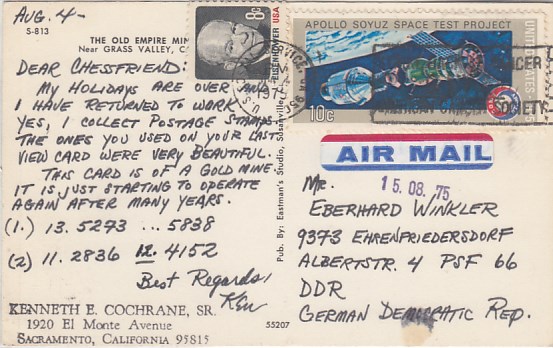 AUG. 4 -
S-813
THE OLD EMPIRE MIN
Near GRASS VALLEY, C
DEAR CHESSFRIEND:
MY HOLIDAYS ARE OVER AND
I HAVE RETURNED TO WORK
YES, I COLLECT POSTAGE STAMPS.
THE ONES YOU USED ON YOUR LAST
VIEW CARD WERE VERY BEAUTIFUL.
THIS CARD IS OF A GOLD MINE.
IT IS JUST STARTING TO OPERATE
AGAIN AFTER MANY YEARS.
(1.) 13. 5273 ... 5838
(2) 11. 2836 12. 4152
Best Regards,
Ken
KENNETH E. COCHRANE, SR.
1920 El Monte Avenue
SACRAMENTO, CALIFORNIA 95815
55207
Pub. By: Eastman's Studio, Susanville,
8c
EISENHOWER USA
APOLLO SOYUZ SPACE TEST PROJECT
UNITED STATES
10c
CANCER
SOCIETY
AIR MAIL
15. 08. 75
MR.
EBERHARD WINKLER
9373 EHRENFRIEDERSDORF
ALBERTSTR. 4 PSF 66
DDR
GERMAN DEMOCRATIC REP.